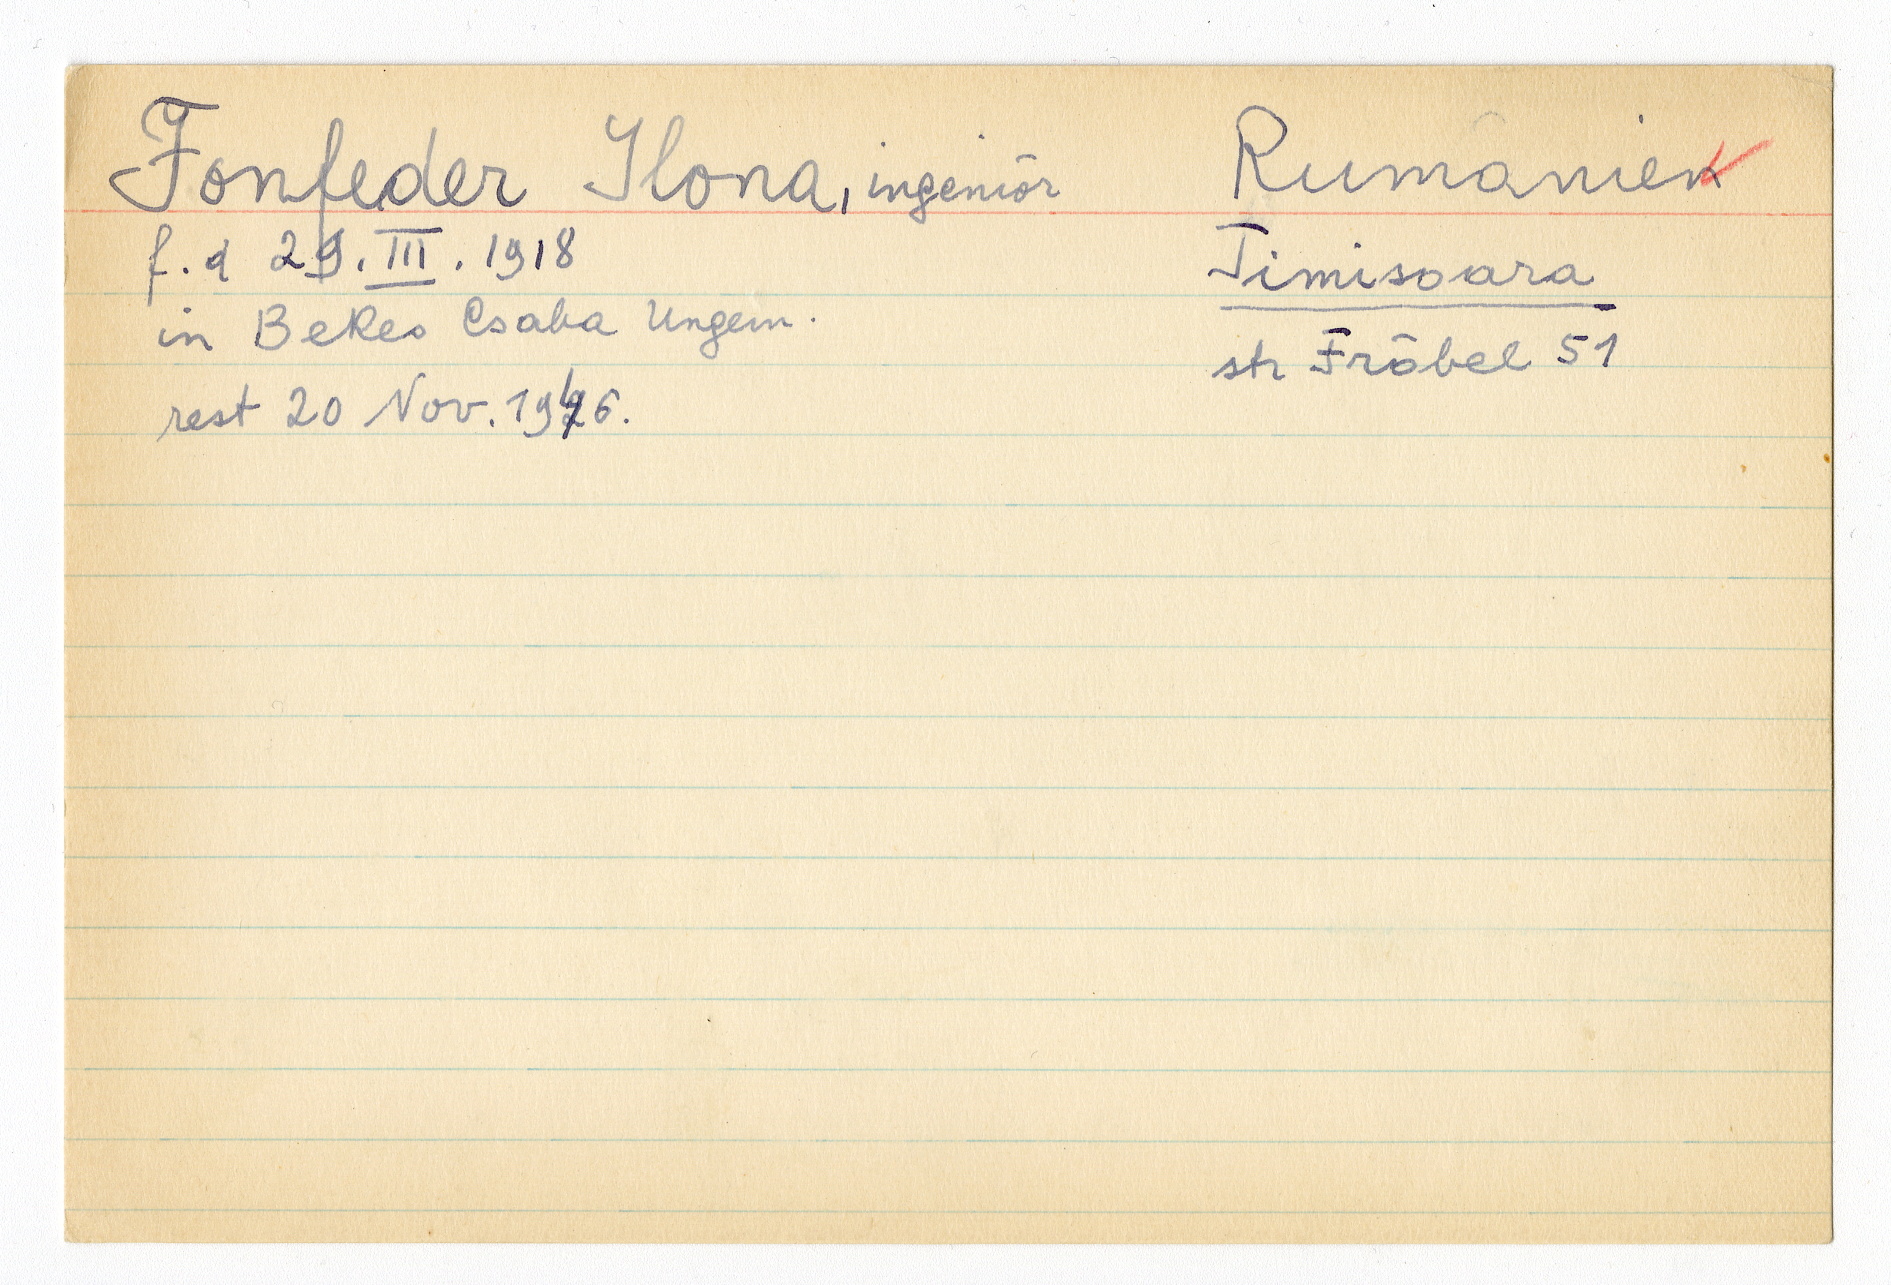 Fonfeder Ilona, ingeniör Rumänien
f. d 29. III. 1918 Timisoara
in Bekes Csaba Ungern.
str Fröbel 51
rest 20 Nov. 1946.